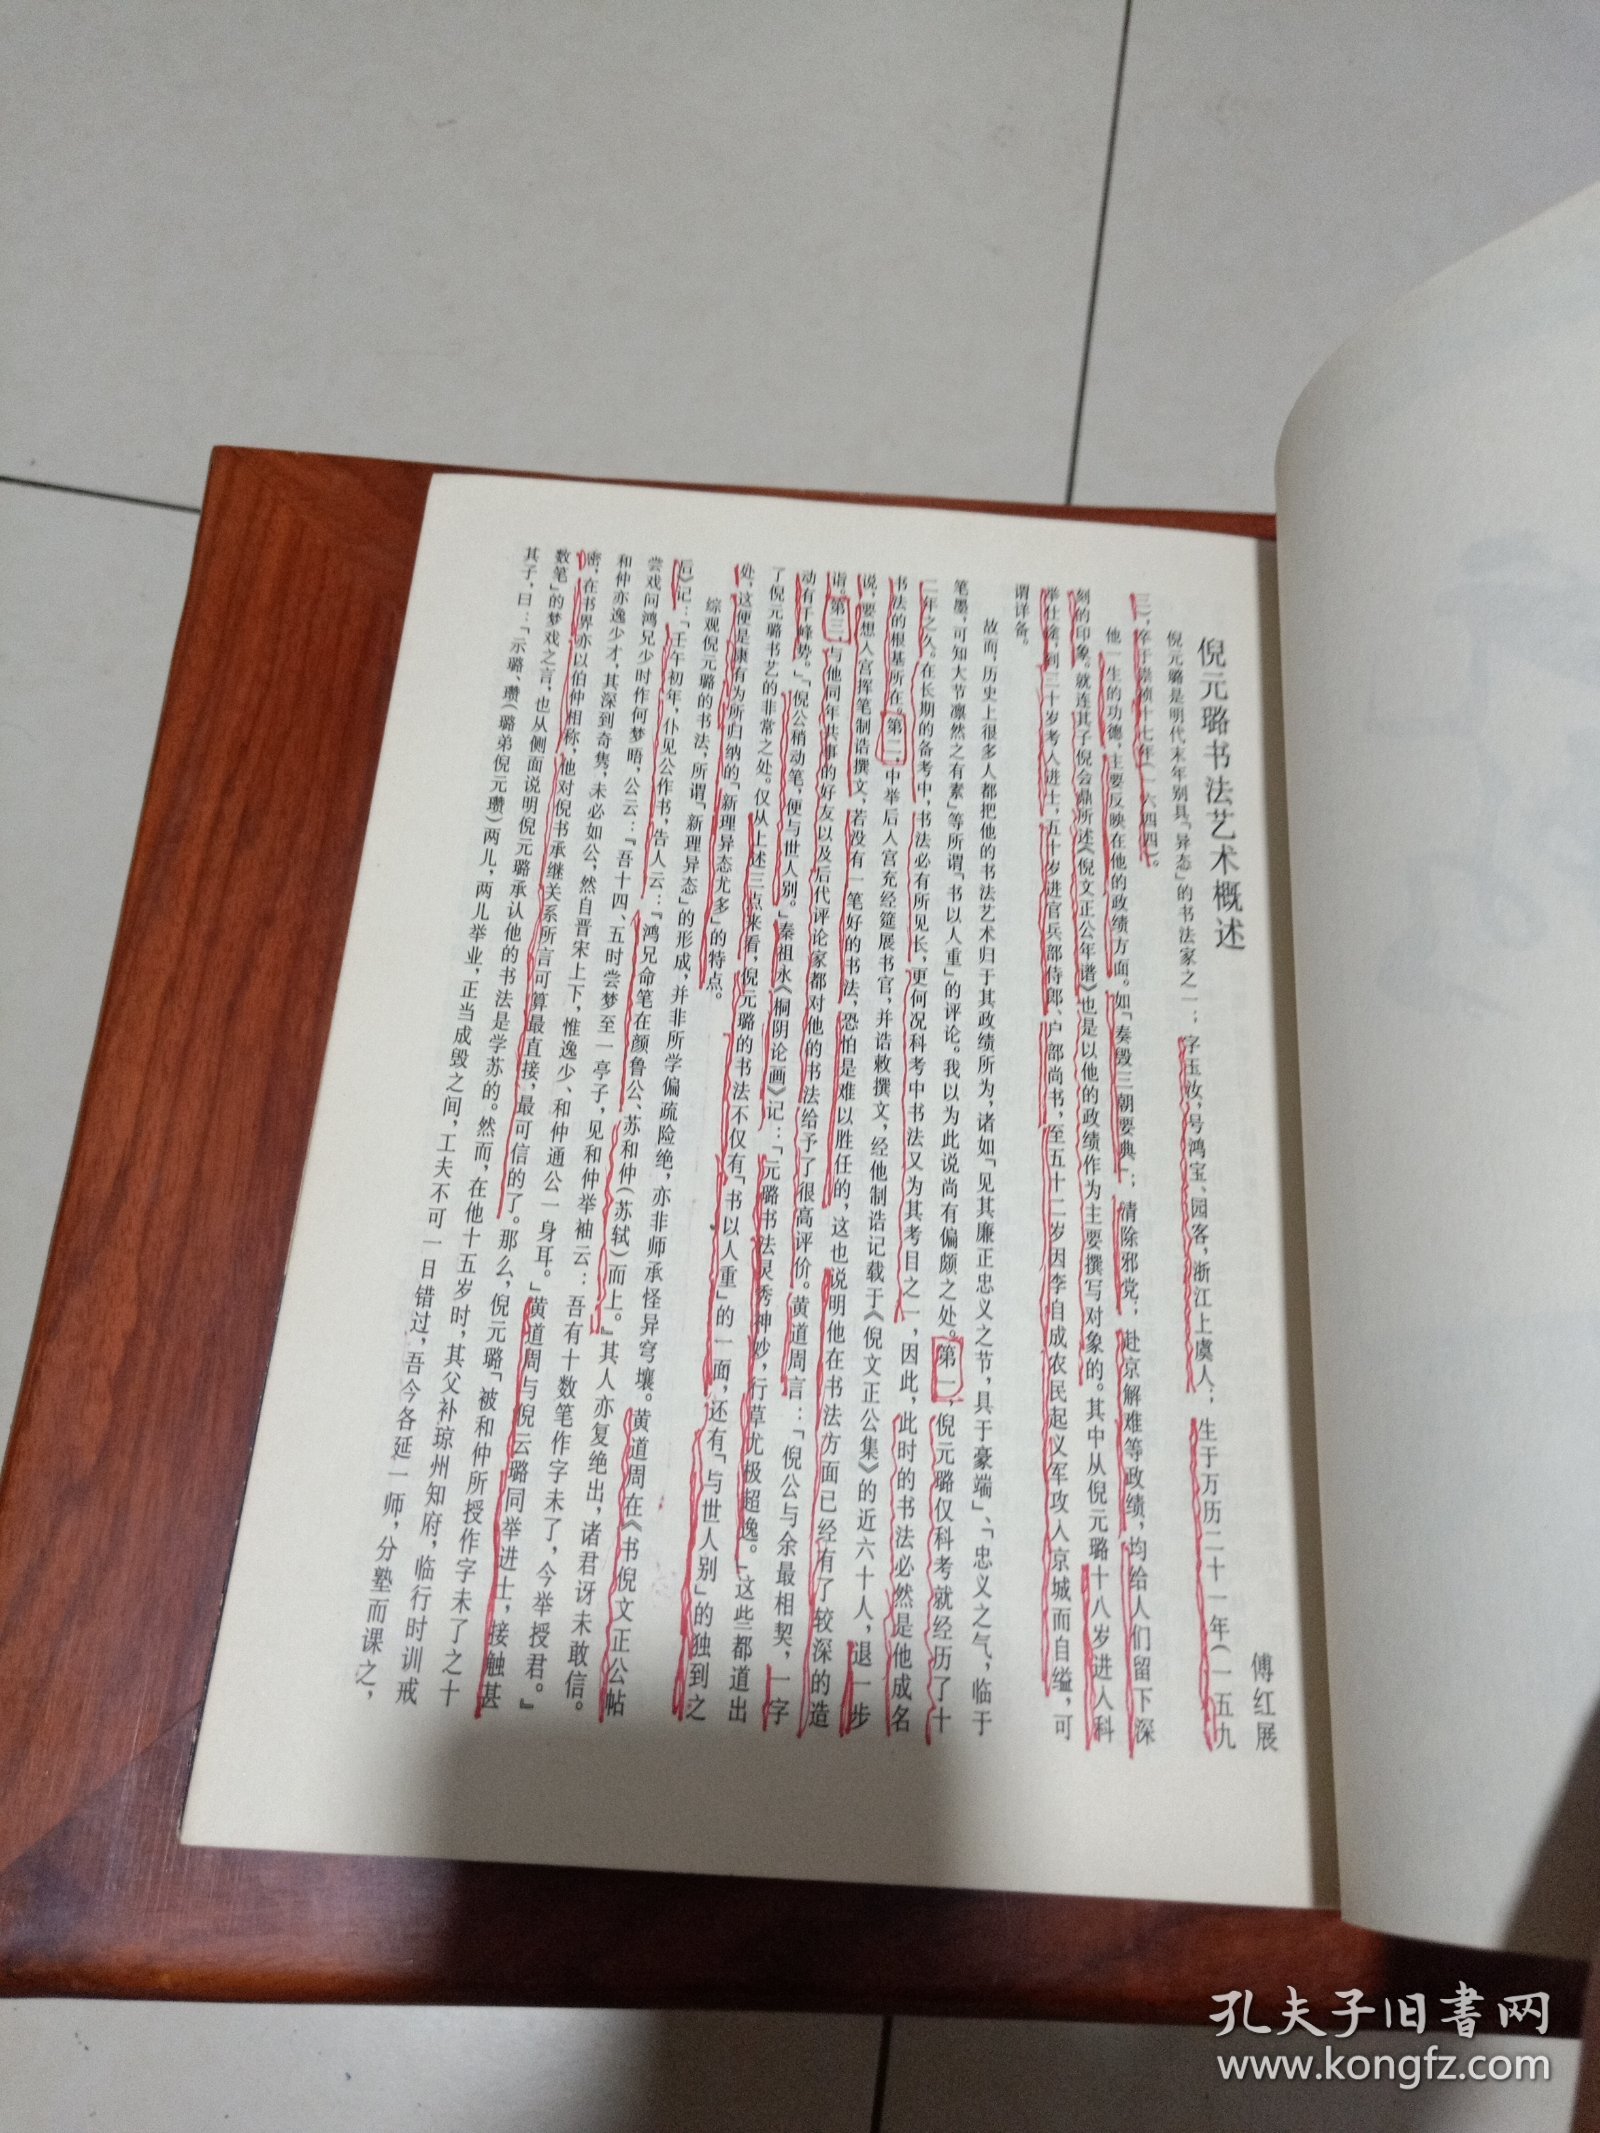 倪元璐书法艺术概述
傅红展
倪元璐是明代末年别具「异态」的书法家之一；字玉汝，号鸿宝、园客，浙江上虞人；生于万历二十一年（一五九
三），卒于崇祯十七年（一六四四）。
他一生的功德，主要反映在他的政绩方面。如「奏毁三朝要典」；清除邪党；赴京解难等政绩，均给人们留下深
刻的印象。就连其子倪会鼎所述《倪文正公年谱》也是以他的政绩作为主要撰写对象的。其中从倪元璐十八岁进入科
举仕途，到三十岁考入进士，五十岁进官兵部侍郎、户部尚书，至五十二岁因李自成农民起义军攻入京城而自缢，可
谓详备。
故而，历史上很多人都把他的书法艺术归于其政绩所为，诸如「见其廉正忠义之节，具于豪端」、「忠义之气，临于
笔墨，可知大节凛然之有素」等所谓「书以人重」的评论。我以为此说尚有偏颇之处。第一，倪元璐仅科考就经历了十
二年之久。在长期的备考中，书法必有所见长，更何况科考中书法又为其考目之一，因此，此时的书法必然是他成名
书法的根基所在。第二，中举后入宫充经筵展书官，并诰敕撰文，经他制诰记载于《倪文正公集》的近六十人，退一步
说，要想入宫挥笔制诰撰文，若没有一笔好的书法，恐怕是难以胜任的，这也说明他在书法方面已经有了较深的造
诣。第三，与他同年共事的好友以及后代评论家都对他的书法给予了很高评价。黄道周言：「倪公与余最相契，一字
动有千峰势。」「倪公稍动笔，便与世人别。」秦祖永《桐阴论画》记：「元璐书法灵秀神妙，行草尤极超逸。」这些都道出
了倪元璐书艺的非常之处。仅从上述三点来看，倪元璐的书法不仅有「书以人重」的一面，还有「与世人别」的独到之
处，这便是康有为所归纳的「新理异态尤多」的特点。
综观倪元璐的书法，所谓「新理异态」的形成，并非所学偏疏险绝，亦非师承怪异穹壤。黄道周在《书倪文正公帖
后》记：「壬午初年，仆见公作书，告人云：『鸿兄命笔在颜鲁公、苏和仲（苏轼）而上。』其人亦复绝出，诸君讶未敢信。
尝戏问鸿兄少时作何梦晤，公云：『吾十四、五时尝梦至一亭子，见和仲举袖云：吾有十数笔作字未了，今举授君。』
和仲亦逸少才，其深到奇隽，未必如公，然自晋宋上下，惟逸少、和仲通公一身耳。」黄道周与倪云璐同举进士，接触甚
密，在书界亦以伯仲相称，他对倪书承继关系所言可算最直接，最可信的了。那么，倪元璐「被和仲所授作字未了之十
数笔」的梦戏之言，也从侧面说明倪元璐承认他的书法是学苏的。然而，在他十五岁时，其父补琼州知府，临行时训戒
其子，曰：「示璐、瓒（璐弟倪元瓒）两儿，两儿举业，正当成毁之间，工夫不可一日错过，吾今各延一师，分塾而课之，
孔夫子旧书网
www.kongfz.com